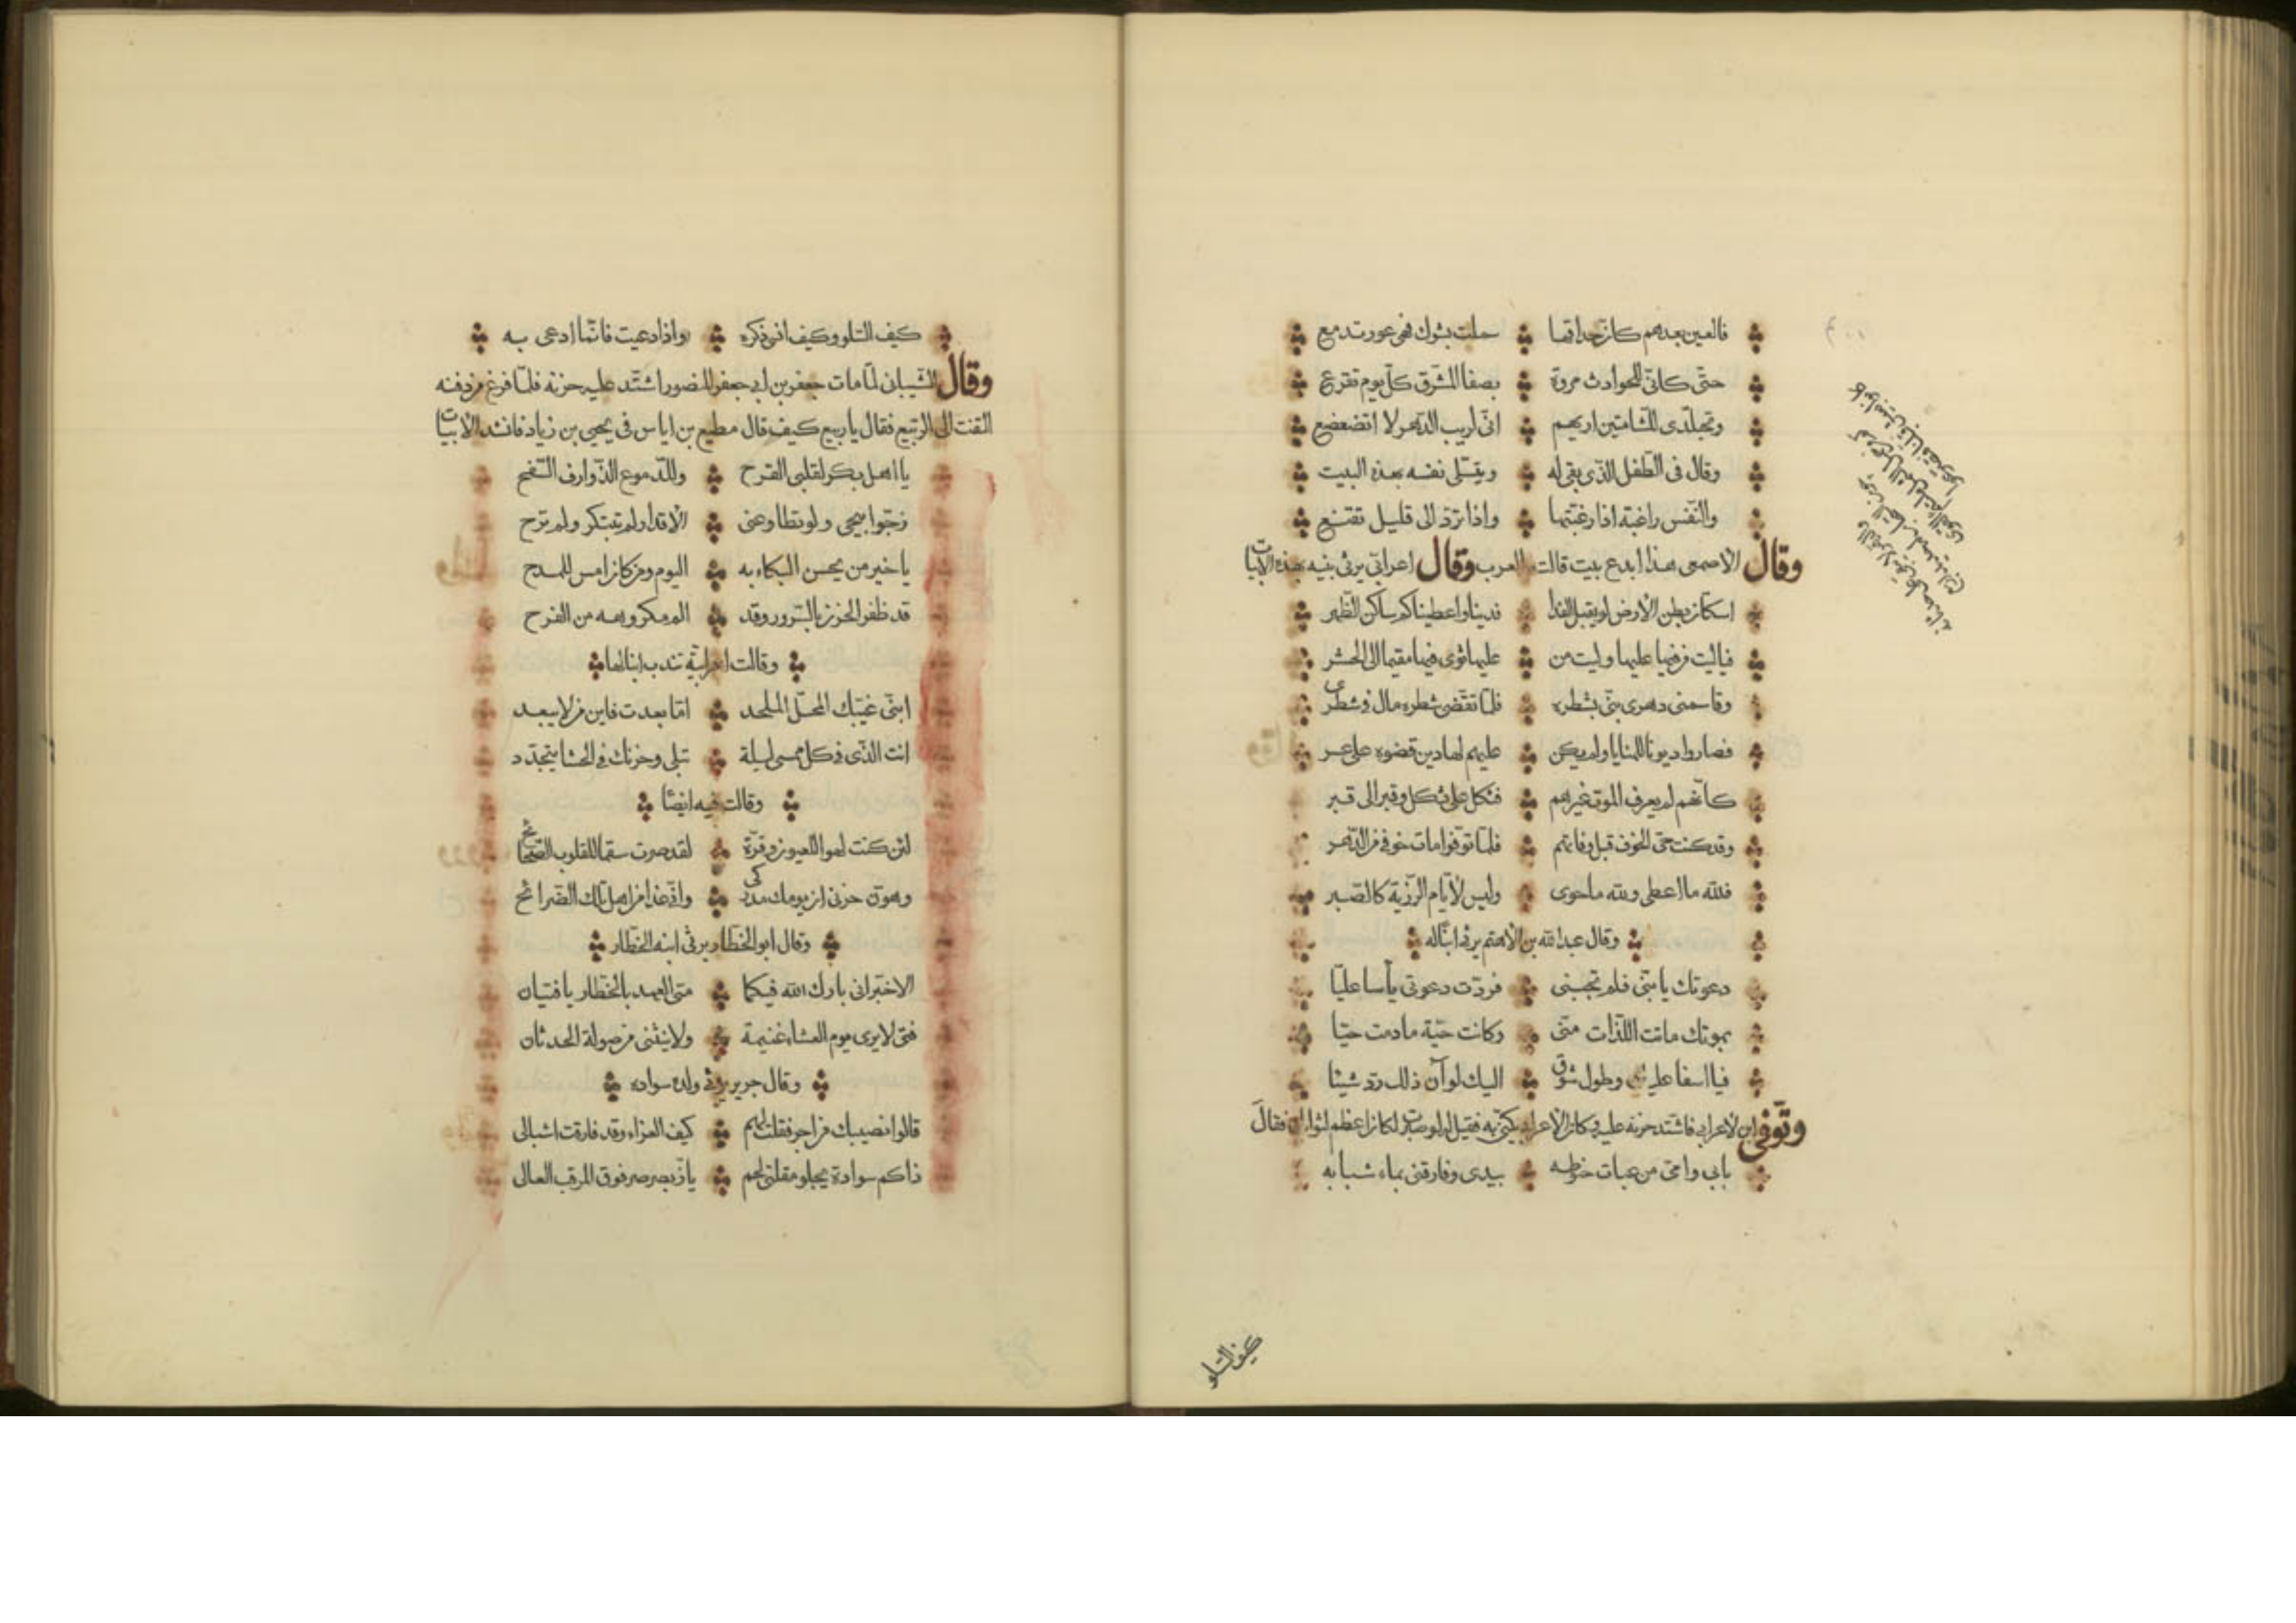 فالعين بعدهم كان حداقها سملت بشوك فهي عور تدمع
حتى كانى للحوادث مروة بصفا المشرق كل يوم تقرع
وتجلدى للشامتين اريهم انى لريب الدهر لا اتضعضع
وقال فى الطفل الذى بقى له ويتسلى نفسه بهذه البيت
والنفس راغبة اذا رغبتها واذا ترد الى قليل تقنع
وقال الاصمعى هذا ابدع بيت قالته العرب وقال اعرابى يرثى بنيه بهذه الابيات
اسكان بطن الارض لو يقبل الفدا فدينا واعطيناكم ساكن الظهر
فياليت من فيها عليها وليت من عليها ثوى فيها مقيما الى الحشر
وقاسمنى دهرى بنى بشطره فلما تقضى شطره مال فى شطرى
فصاروا ديونا للمنايا ولم يكن عليهم لها دين قضوه على عسر
كانهم لم يعرف الموت غيرهم فثكل على ثكل وقبر الى قبر
وقد كنت حى الخوف قبل وفاتهم فلما توفوا مات خوفى من الدهر
فلله ما اعطى ولله ما حوى وليس لايام الرزية كالصبر
وقال عبد الله بن الاهتم يرثى ابنا له
دعوتك يا بنى فلم تجبنى فردت دعوتى يأسا عليا
بموتك ماتت اللذات منى وكانت حية ما دمت حيا
فيا اسفا عليك وطول شوقى اليك لو ان ذلك رد شيئا
وتوفى ابن لاعرابى فاشتد حزنه عليه وكان الاعرابى يكنى به فقيل له لو صبرت لكان اعظم لثوابك فقال
بابى وامى من عبات حنوطه بيدى وفارقنى بماء شبابه
كيف السلو
كيف السلو وكيف انسى ذكره واذا دعيت فانما ادعى به
وقال الشيبانى لما مات جعفر بن ابى جعفر المنصور اشتد عليه حزنه فلما فرغ من دفنه
التفت الى الربيع فقال يا ربيع كيف قال مطيع بن اياس فى يحيى بن زياد فانشد الابيات
يا اهل بكر لقلبى القرح وللدموع الذوارف السفح
رجوا بيحيى ولو تطاوعنى الاقدار لم تبتكر ولم ترح
يا خير من يحسن البكاء به اليوم ومن كان امس للمدح
قد ظفر الحزن بالسرور وقد الم مكروهه من الفرح
وقالت اعرابية تندب ابنا لها
ابنى غيبك المحل الملحد اما بعدت فاين من لا يبعد
انت الذى فى كل ممسى ليلة تبلى وحزنك فى الحشا يتجدد
وقالت فيه ايضا
لئن كنت لهوا للعيون وقرة لقد صرت سقما للقلوب الصحائح
وهون حزنى ان يومك مدركى وانى غدا من اهل تلك الضرائح
وقال ابو الخطار يرثى ابنه الخطار
الا خبرانى بارك الله فيكما متى العهد بالخطار يا فتيان
فتى لا يرى يوم العشاء غنيمة ولا ينثنى من صولة الحدثان
وقال جرير يرثى ولده سواده
قالوا نصيبك من اجر فقلت لهم كيف العزاء وقد فارقت اشبالى
ذاكم سوادة يجلو مقلتى لحم باز يصرصر فوق المرقب العالى